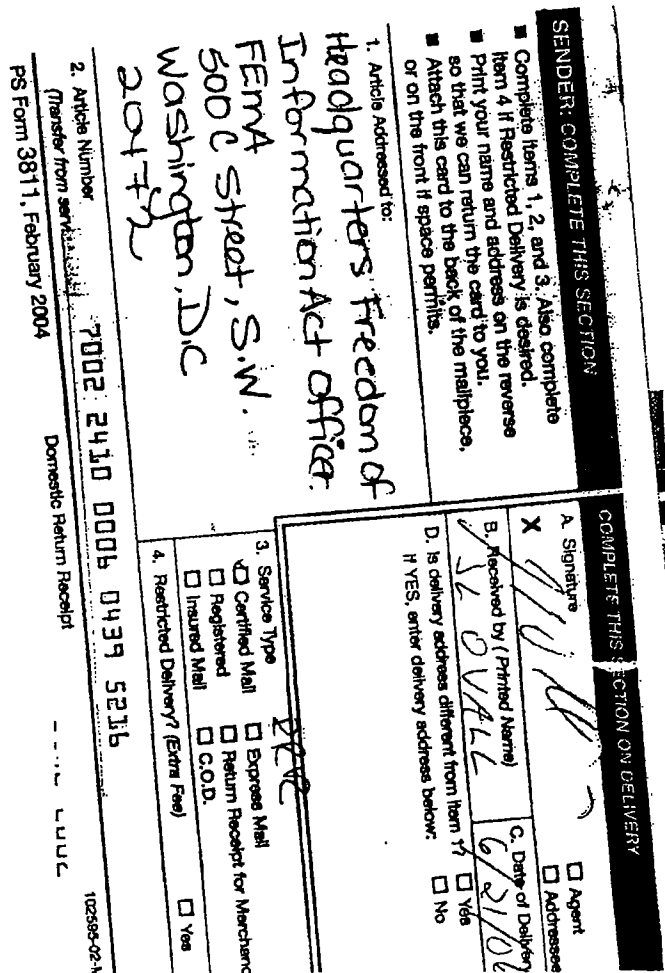 SENDER: COMPLETE THIS SECTION
■ Complete items 1, 2, and 3. Also complete
item 4 if Restricted Delivery is desired.
■ Print your name and address on the reverse
so that we can return the card to you.
■ Attach this card to the back of the mailpiece,
or on the front if space permits.
1. Article Addressed to:
Headquarters Freedom of
Information Act Officer
FEMA
500 C Street, S.W.
Washington, DC
20472
2. Article Number
(Transfer from
7002 2410 0006 0439 5216
PS Form 3811, February 2004
Domestic Return Receipt
102595-02-M
COMPLETE THIS SECTION ON DELIVERY
A. Signature
X
☐ Agent
☐ Addressee
B. Received by (Printed Name)
OVALL
C. Date of Delivery
6/21/06
D. Is delivery address different from item 1? ☐ Yes
If YES, enter delivery address below: ☐ No
3. Service Type
☑ Certified Mail ☐ Express Mail
☐ Registered ☐ Return Receipt for Merchand
☐ Insured Mail ☐ C.O.D.
4. Restricted Delivery? (Extra Fee) ☐ Yes